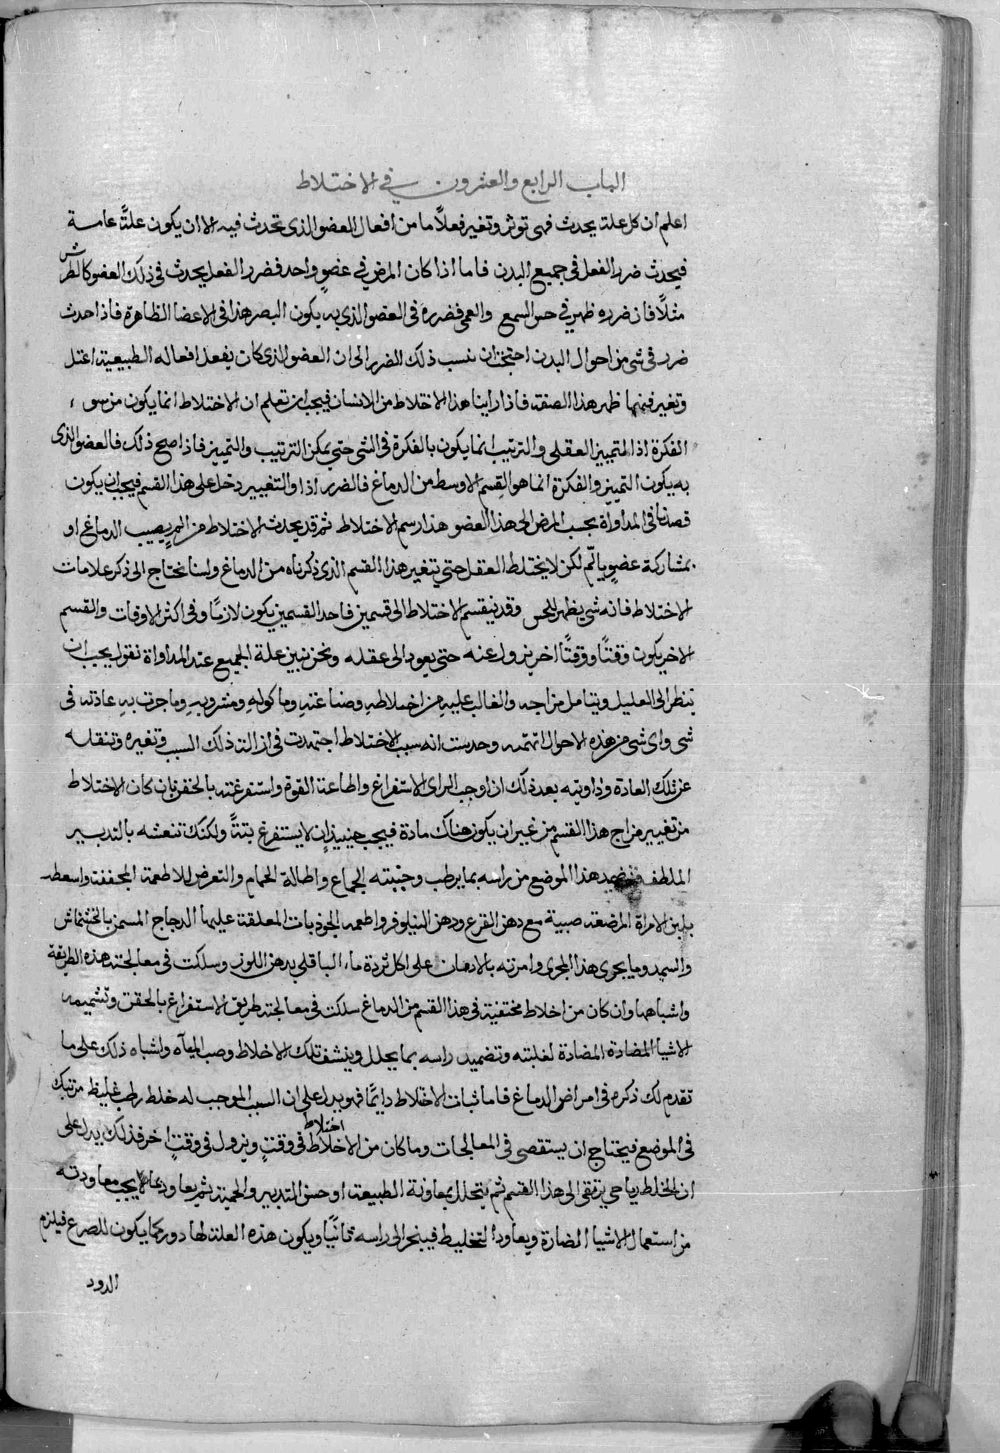 الباب الرابع والعشرون في الاختلاط
اعلم ان كل علة يحدث فهى توثر وتغير فعلاً ما من افعال العضو الذى تحدث فيه الا ان يكون علتًا عامة
فيحدث ضرر الفعل فى جميع البدن فاما اذا كان المرض فى عضوٍ واحد فضرر الفعل يحدث فى ذلك العضو كالطرش
مثلًا فان ضرره وظهر فى حس السمع والعمى فضرره فى العضو الذى به يكون البصر هذا فى الاعضا الظاهرة فاذا حدث
ضرر فى شى من احوال البدن احتجنا ان ننسب ذلك الضرر الى ان العضو الذى كان يفعل افعاله الطبيعية اعتل
وتغير فمنها ظهر هذا الصفة فاذا راينا هذا الاختلاط من الانسان فيجب ان تعلم ان الاختلاط انما يكون من سوء
الفكرة اذ التمييز العقلى والترتيب انما يكون بالفكرة فى الشى حتى يمكن الترتيب والتمييز فاذا صح ذلك فالعضو الذى
به يكون التمييز والفكرة انما هو القسم الاوسط من الدماغ فالضرر اذا والتغيير دخل على هذا القسم فيجب ان يكون
قصدنا فى المداواة بحسب المرض الى هذا العضو هذا رسم الاختلاط ثم قد يحدث الاختلاط من الم يصيب الدماغ او
بمشاركة عضو يالم لكن لا يختلط العقل حتى يتغير هذا القسم الذى ذكرناه من الدماغ ولسنا نحتاج الى ذكر علامات
الاختلاط فانه شى يظهر للحس وقد ينقسم الاختلاط الى قسمين فاحد القسمين يكون لازمًا وفى اكثر الاوقات والقسم
الاخر يكون وقتًا ووقتًا اخر يزول عنه حتى يعود الى عقله ونحن نبين علة الجميع عند المداواة نقول يجب ان
تنظر الى العليل ويتامل مزاجه والغالب عليه من اخلاطه وصناعته وماكوله ومشروبه وما جرت به عادته فى
شى واى شى من هذه الاحوال اتهمته وحدست انه سبب الاختلاط اجتهدت فى ازالة ذلك السبب وتغيره وتنقله
عن تلك العادة وداويته بعد ذلك ان اوجب الراى الاستفراغ واطاعة القوة واستفرغته بالحقن فان كان الاختلاط
من تغيير مزاج هذا القسم من غير ان يكون هناك مادة فيجب حينيذ ان لا يستفرغ بتتًا ولكنك تنعشه بالتدبير
الملطف هذا الموضع من راسه بما يرطب وجنبته الجماع واطالة الحمام والتعرض للاطعمة المجففة واسعطه
بلبن الامراة المرضعة صبية مع دهن القرع ودهن النيلوفر واطعمه الجوذبات المعلقة عليها الدجاج المسمن بالخشخاش
والسميد وما يجرى هذا المجرى وامرته بالادمان على اكل ثردة ماء الباقلى بدهن اللوز وسلكت فى معالجته هذه الطريقة
واشباهها وان كان من اخلاط محتقنة فى هذا القسم من الدماغ سلكت فى معالجته طريق الاستفراغ بالحقن وتشميمه
الاشيا المضادة المضادة لعلته وتضميد راسه بما يحلل وينشف تلك الاخلاط وصب المياه واشباه ذلك على ما
تقدم لك ذكره فى امراض الدماغ فاما ثبات الاختلاط دايمًا فهو يدل على ان السبب الموجب له خلط رطب غليظ مرتبك
فى الموضع فيحتاج ان يستقصى فى المعالجات وما كان من الاخلاط اختلاط فى وقتٍ ويزول فى وقتٍ اخر فذلك يدل على
ان الخلط رياحى يرتقى الى هذا القسم ثم يتحلل بمعاونة الطبيعة او حسن التدبير والحمية ثم يعاود ما لا يجب معاودته
من استعمال الاشيا المضارة ويعاود التخليط فيبخر الى راسه ثانيًا ويكون هذه العلة لها دور كما يكون للصرع فيلزم
الدود